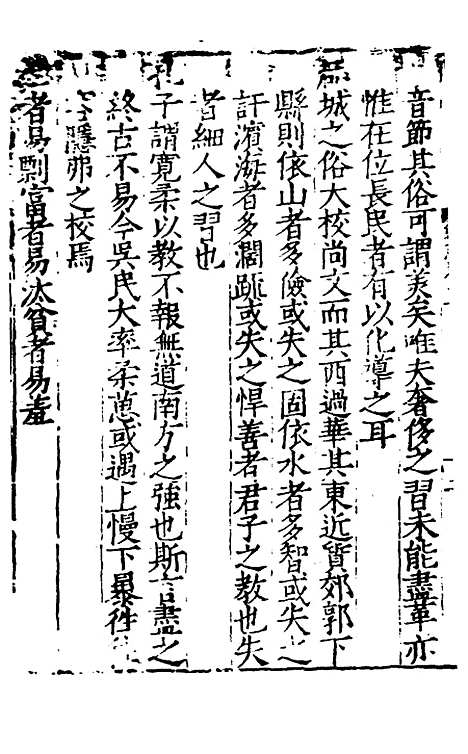 音節其俗可謂美矣唯夫奢侈之習未能盡革亦
惟在位長民者有以化導之耳
郡城之俗大校尚文而其西過華其東近質郊郭下
縣則依山者多儉或失之固依水者多智或失之
訐濱海者多闊踈或失之悍善者君子之教也失
者細人之習也
孔子謂寬柔以教不報無道南方之強也斯言盡之
終古不易今吳民大率柔葸或遇上慢下暴往
隱弗之校焉
者易剽富者易汰貧者易羞